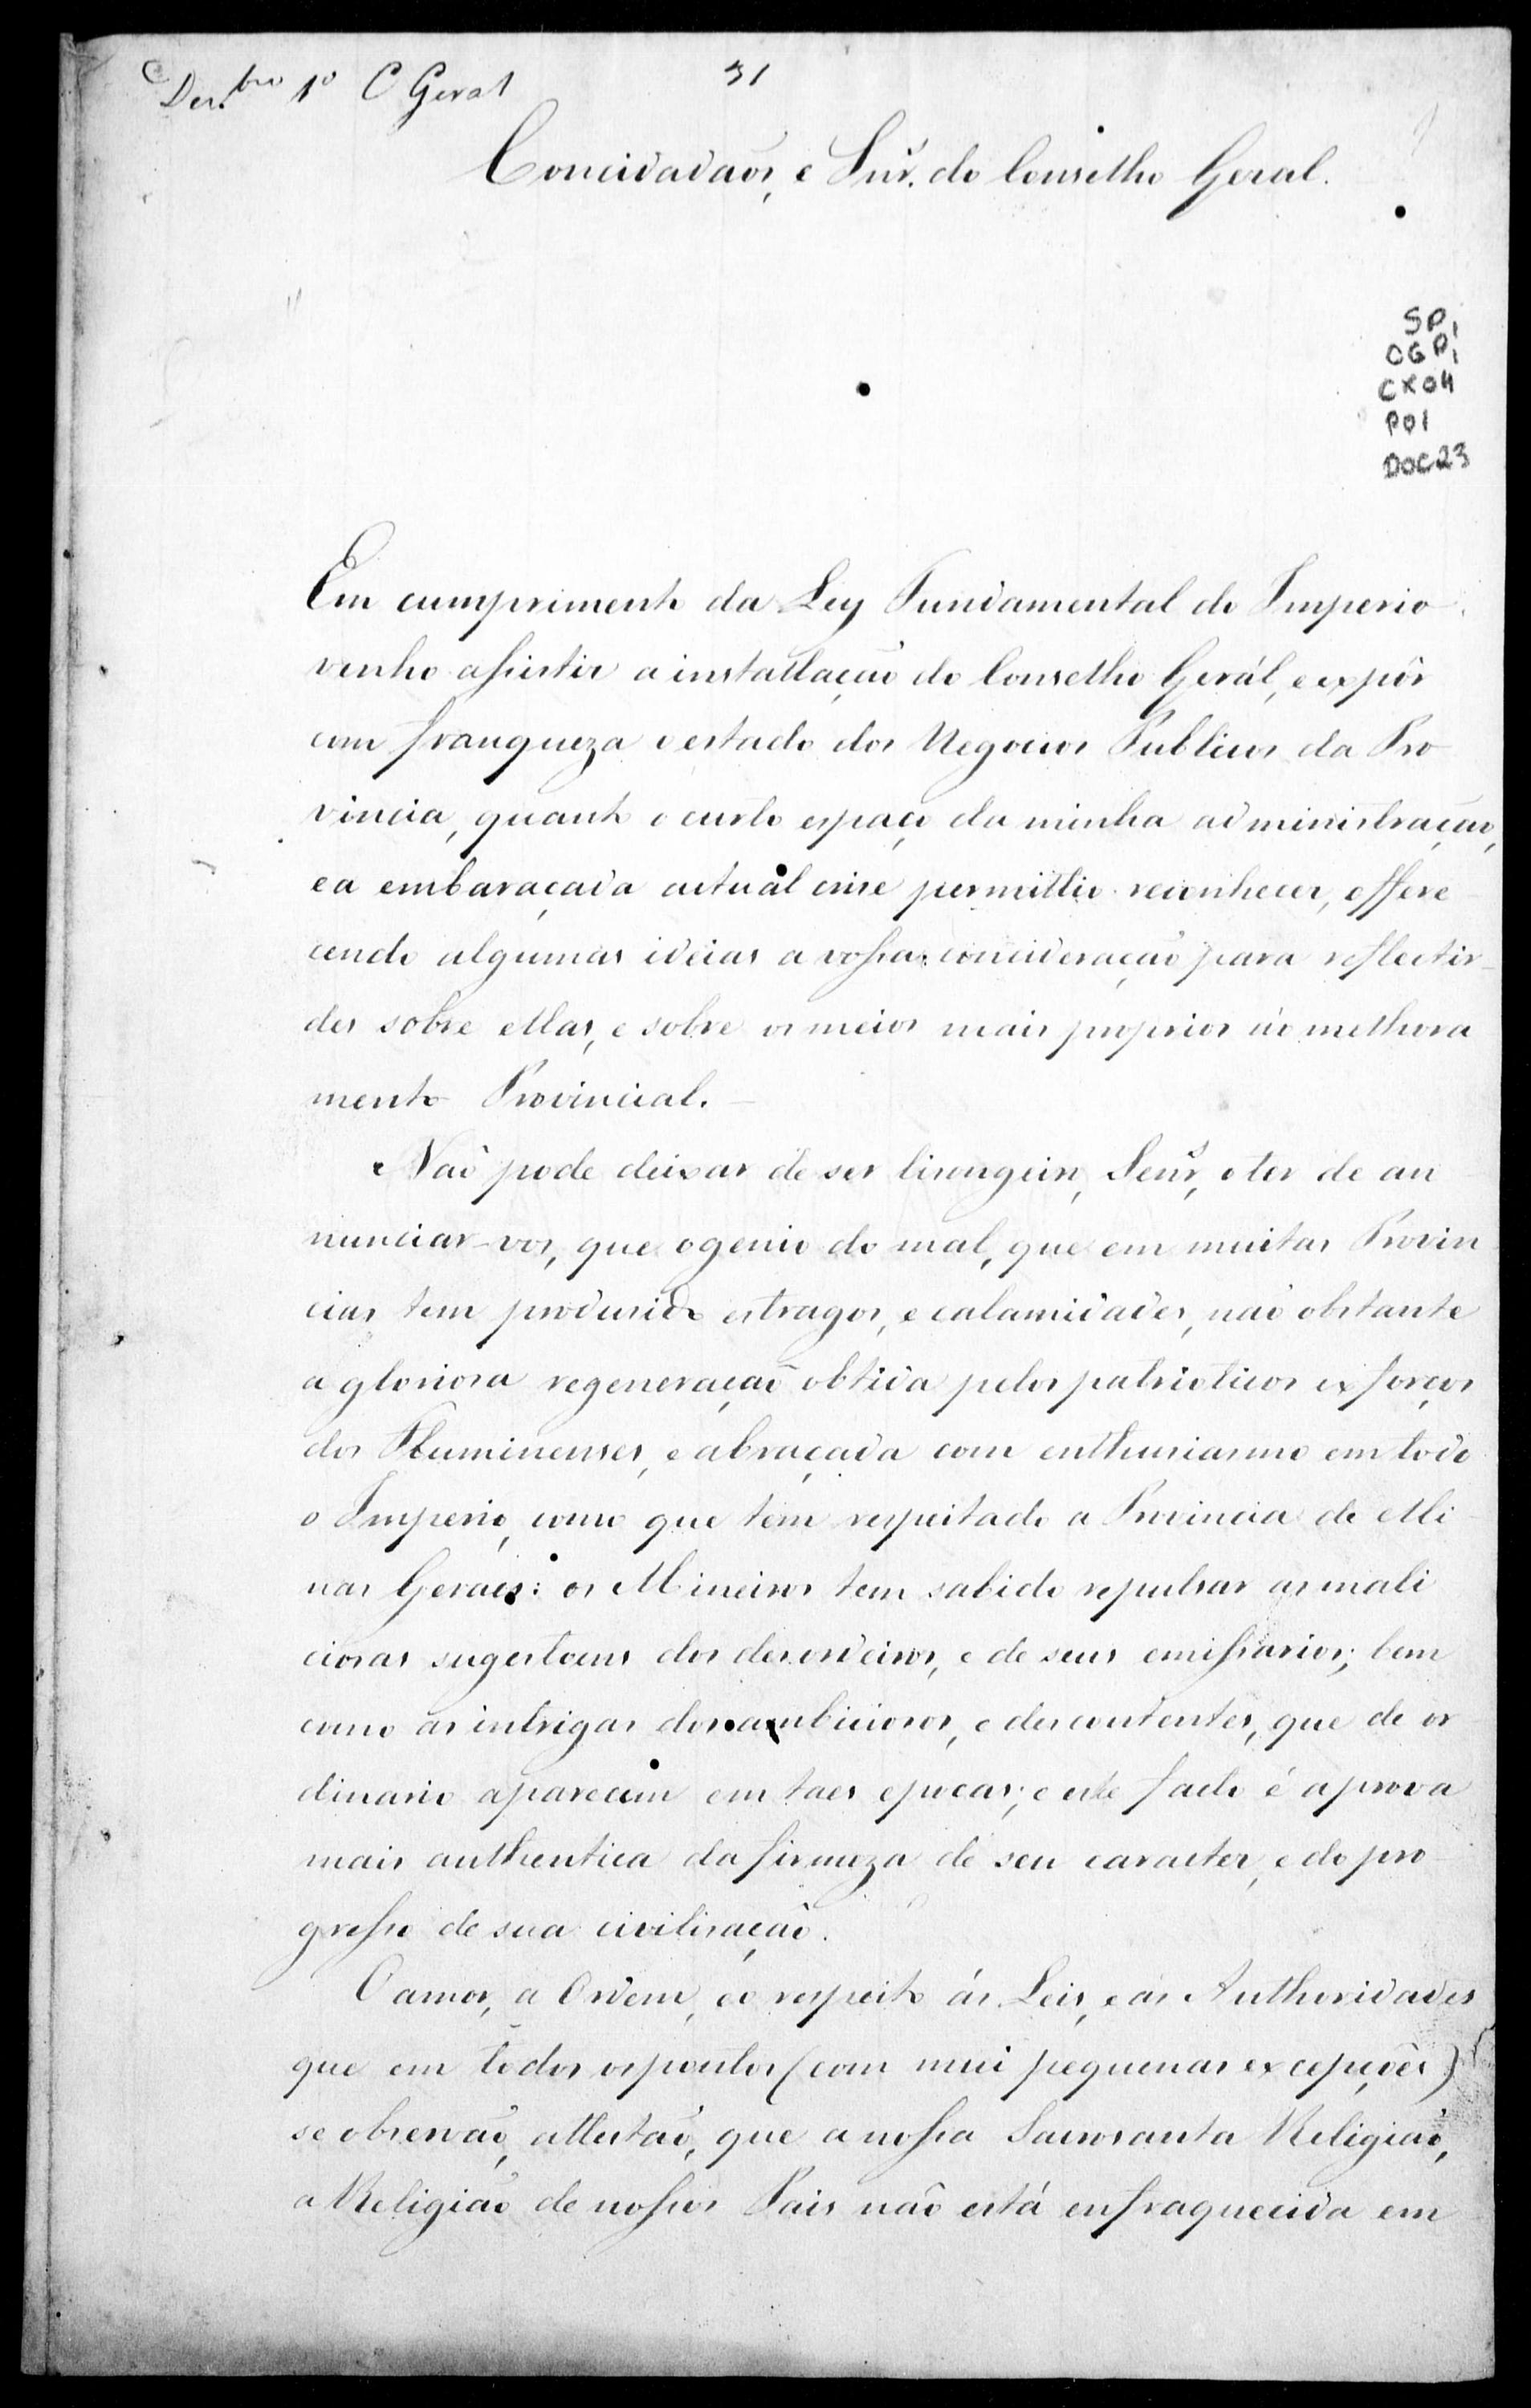 Dez.bro 1º C Geral 31
Concidadaõs, e Snr.s do Conselho Geral.
SP1
CGP1
CX04
P01
DOC23
Em cumprimento da Ley Fundamental do Imperio
venho assistir a installaçaõ do Conselho Gerál, e expôr
com franqueza o estado dos Negocios Publicos da Pro
vincia, quanto o curto espaço da minha administraçaõ,
e a embaraçada actuál crise permittio reconhecer, offere
cendo algumas idéias a vossa concideraçaõ para reflectir-
des sobre ellas, e sobre os meios mais proprios áo melhora
mento Provincial.
Naõ pode deixar de ser lisongeiro, Senr.s, o ter de an
nunciar-vos, que o genio do mal, que em muitas Provin
cias tem produsido estragos, e calamidades, naõ obstante
a gloriosa regeneraçaõ obtida pelos patrioticos exforços
dos Fluminenses, e abraçada com enthusiasmo em todo
o Imperio, como que tem respeitado a Provincia de Mi
nas Geraes: os Mineiros tem sabido repulsar as mali
ciosas sugestoens dos desordeiros, e de seus emissarios; bem
como as intrigas dos ambiciosos, e descontentes, que de or
dinario aparecem em taes epocas; e este facto é a prova
mais authentica da firmeza de seu caracter, e do pro
gresso de sua civilisaçaõ.
O amor, a Ordem, e o respeito ás Leis, e as Authoridades
que em todos os pontos (com mui pequenas excepçoẽs)
se observaõ, attestaõ, que a nossa Sacrosanta Religiaõ,
a Religiaõ de nossos Pais naõ está enfraquecida em